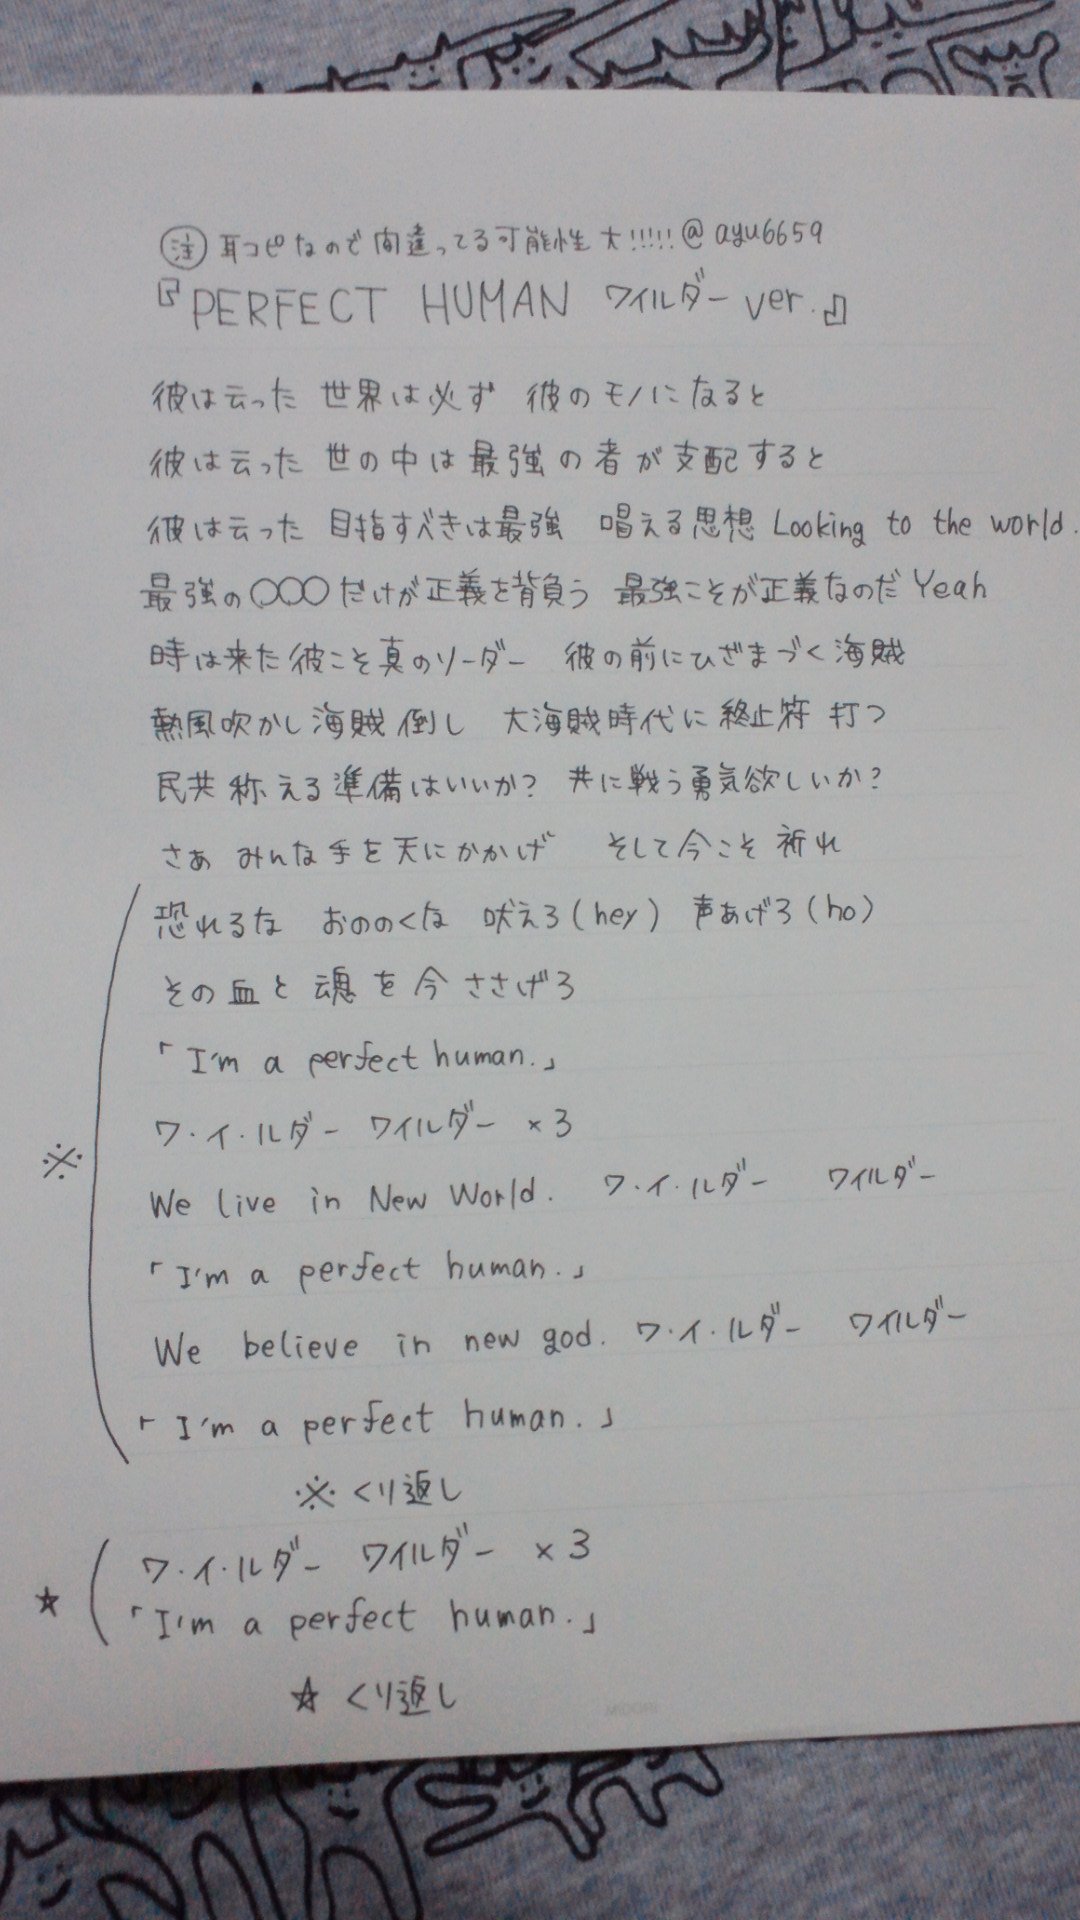 ㊟ 耳コピなので間違ってる可能性大!!!!! @ayu6659
『PERFECT HUMAN ワイルダー ver.』
彼は云った 世界は必ず 彼のモノになると
彼は云った 世の中は最強の者が支配すると
彼は云った 目指すべきは最強 唱える思想 Looking to the world.
最強の〇〇〇だけが正義を背負う 最強こそが正義なのだ Yeah
時は来た彼こそ真のソーダー 彼の前にひざまづく海賊
熱風吹かし海賊倒し 大海賊時代に終止符打つ
民共称える準備はいいか? 共に戦う勇気欲しいか?
さぁ みんな手を天にかかげ そして今こそ祈れ
恐れるな おののくな 吠えろ(hey) 声あげろ(ho)
その血と魂を今ささげろ
「I'm a perfect human.」
ワ・イ・ルダー ワイルダー ×3
※
We live in New World. ワ・イ・ルダー ワイルダー
「I'm a perfect human.」
We believe in new god. ワ・イ・ルダー ワイルダー
「I'm a perfect human.」
※くり返し
ワ・イ・ルダー ワイルダー ×3
☆ 「I'm a perfect human.」
☆ くり返し